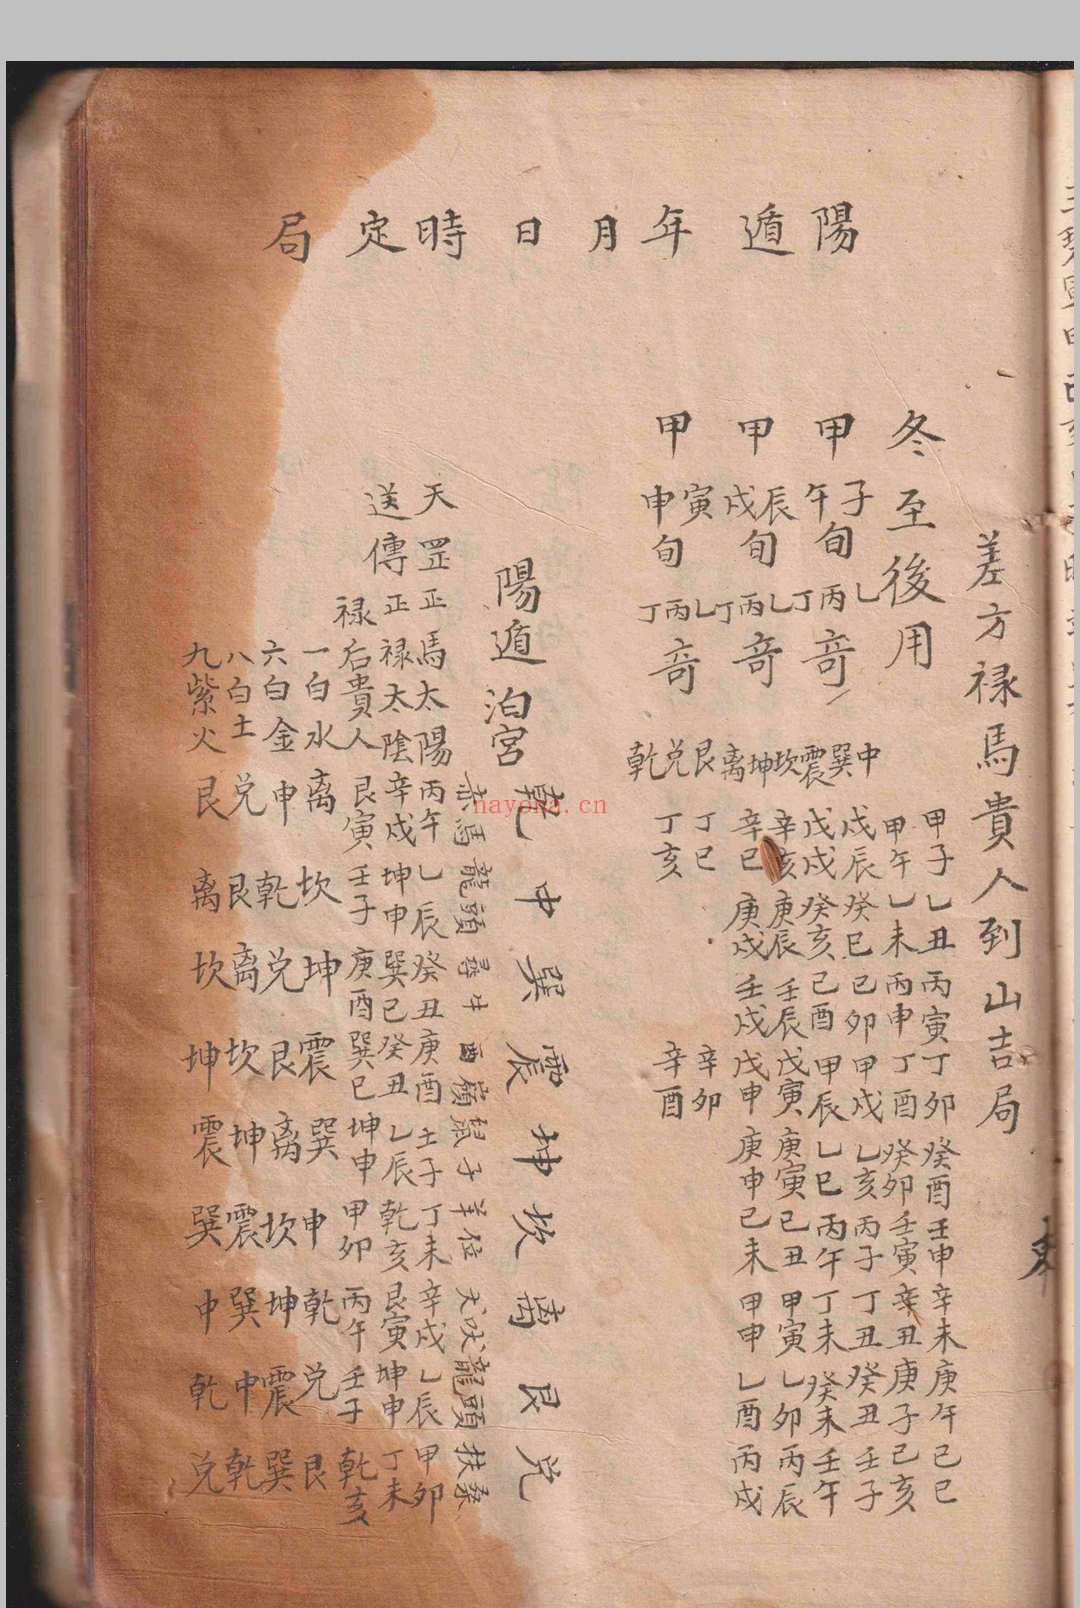 陽遁年月日時定局
差方禄馬貴人到山吉局
冬至後用
甲子午旬乙丙丁奇
甲辰戌旬乙丙丁奇
甲寅申旬乙丙丁奇
中巽震坎坤离艮兑乾
甲子乙丑丙寅丁卯癸酉壬申辛未庚午己巳
甲午乙未丙申丁酉癸卯壬寅辛丑庚子己亥
戊辰癸巳己卯甲戌乙亥丙子丁丑癸丑壬子
戊戌癸亥己酉甲辰乙巳丙午丁未癸未壬午
辛亥庚辰壬辰戊寅庚寅己丑甲寅乙卯丙辰
辛巳庚戌壬戌戊申庚申己未甲申乙酉丙戌
丁巳辛卯
丁亥辛酉
陽遁泊宮乾中巽震坤坎离艮兑
赤馬龍頭尋牛酉嶺鼠子羊位犬吠龍頭扶桑
天罡正馬太陽丙午乙辰癸丑庚酉壬子丁未辛戌乙辰甲卯
送傳正禄太陰辛戌坤申巽巳癸丑乙辰乾亥艮寅坤申丁未
禄后貴人艮寅壬子庚酉巽巳坤申甲卯丙午壬子乾亥
一白水离坎坤震巽申乾兑艮
六白金申乾兑艮离坎坤震巽
八白土兑艮离坎坤震巽中乾
九紫火艮离坎坤震巽中乾兑
nayona.cn